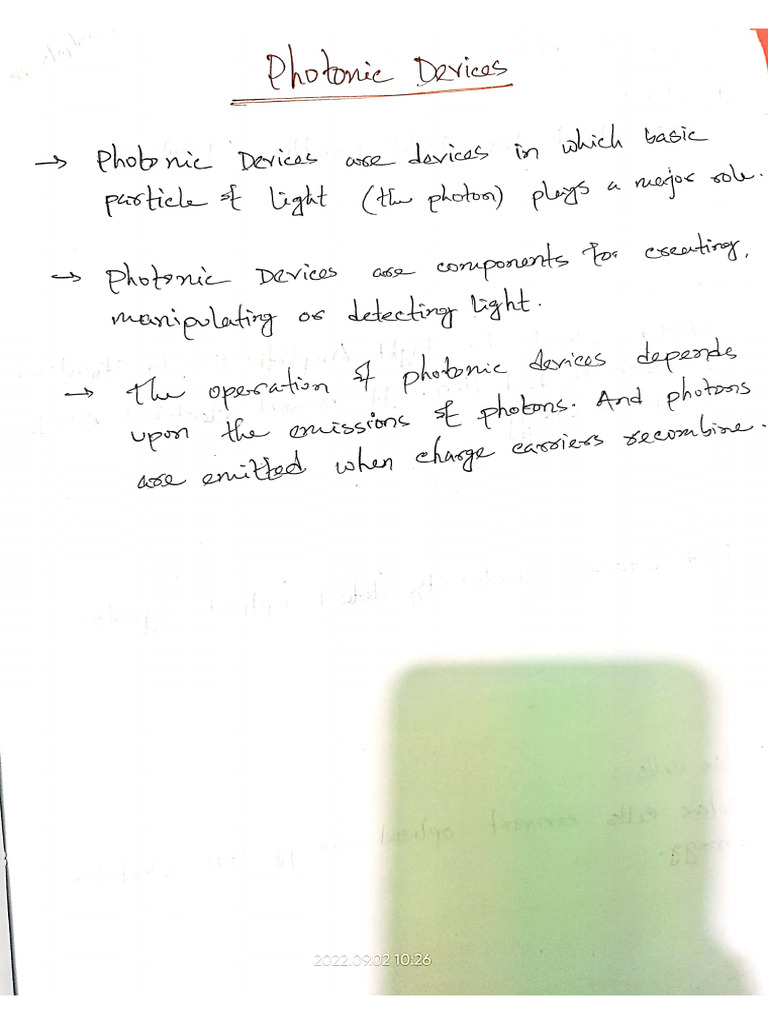 Photonic Devices
→ Photonic Devices are devices in which basic
particle of light (the photon) plays a major role.
→ Photonic Devices are components for creating,
manipulating or detecting light.
→ The operation of photonic devices depends
upon the emissions of photons. And photons
are emitted when charge carriers recombine.
2022.09.02 10:26